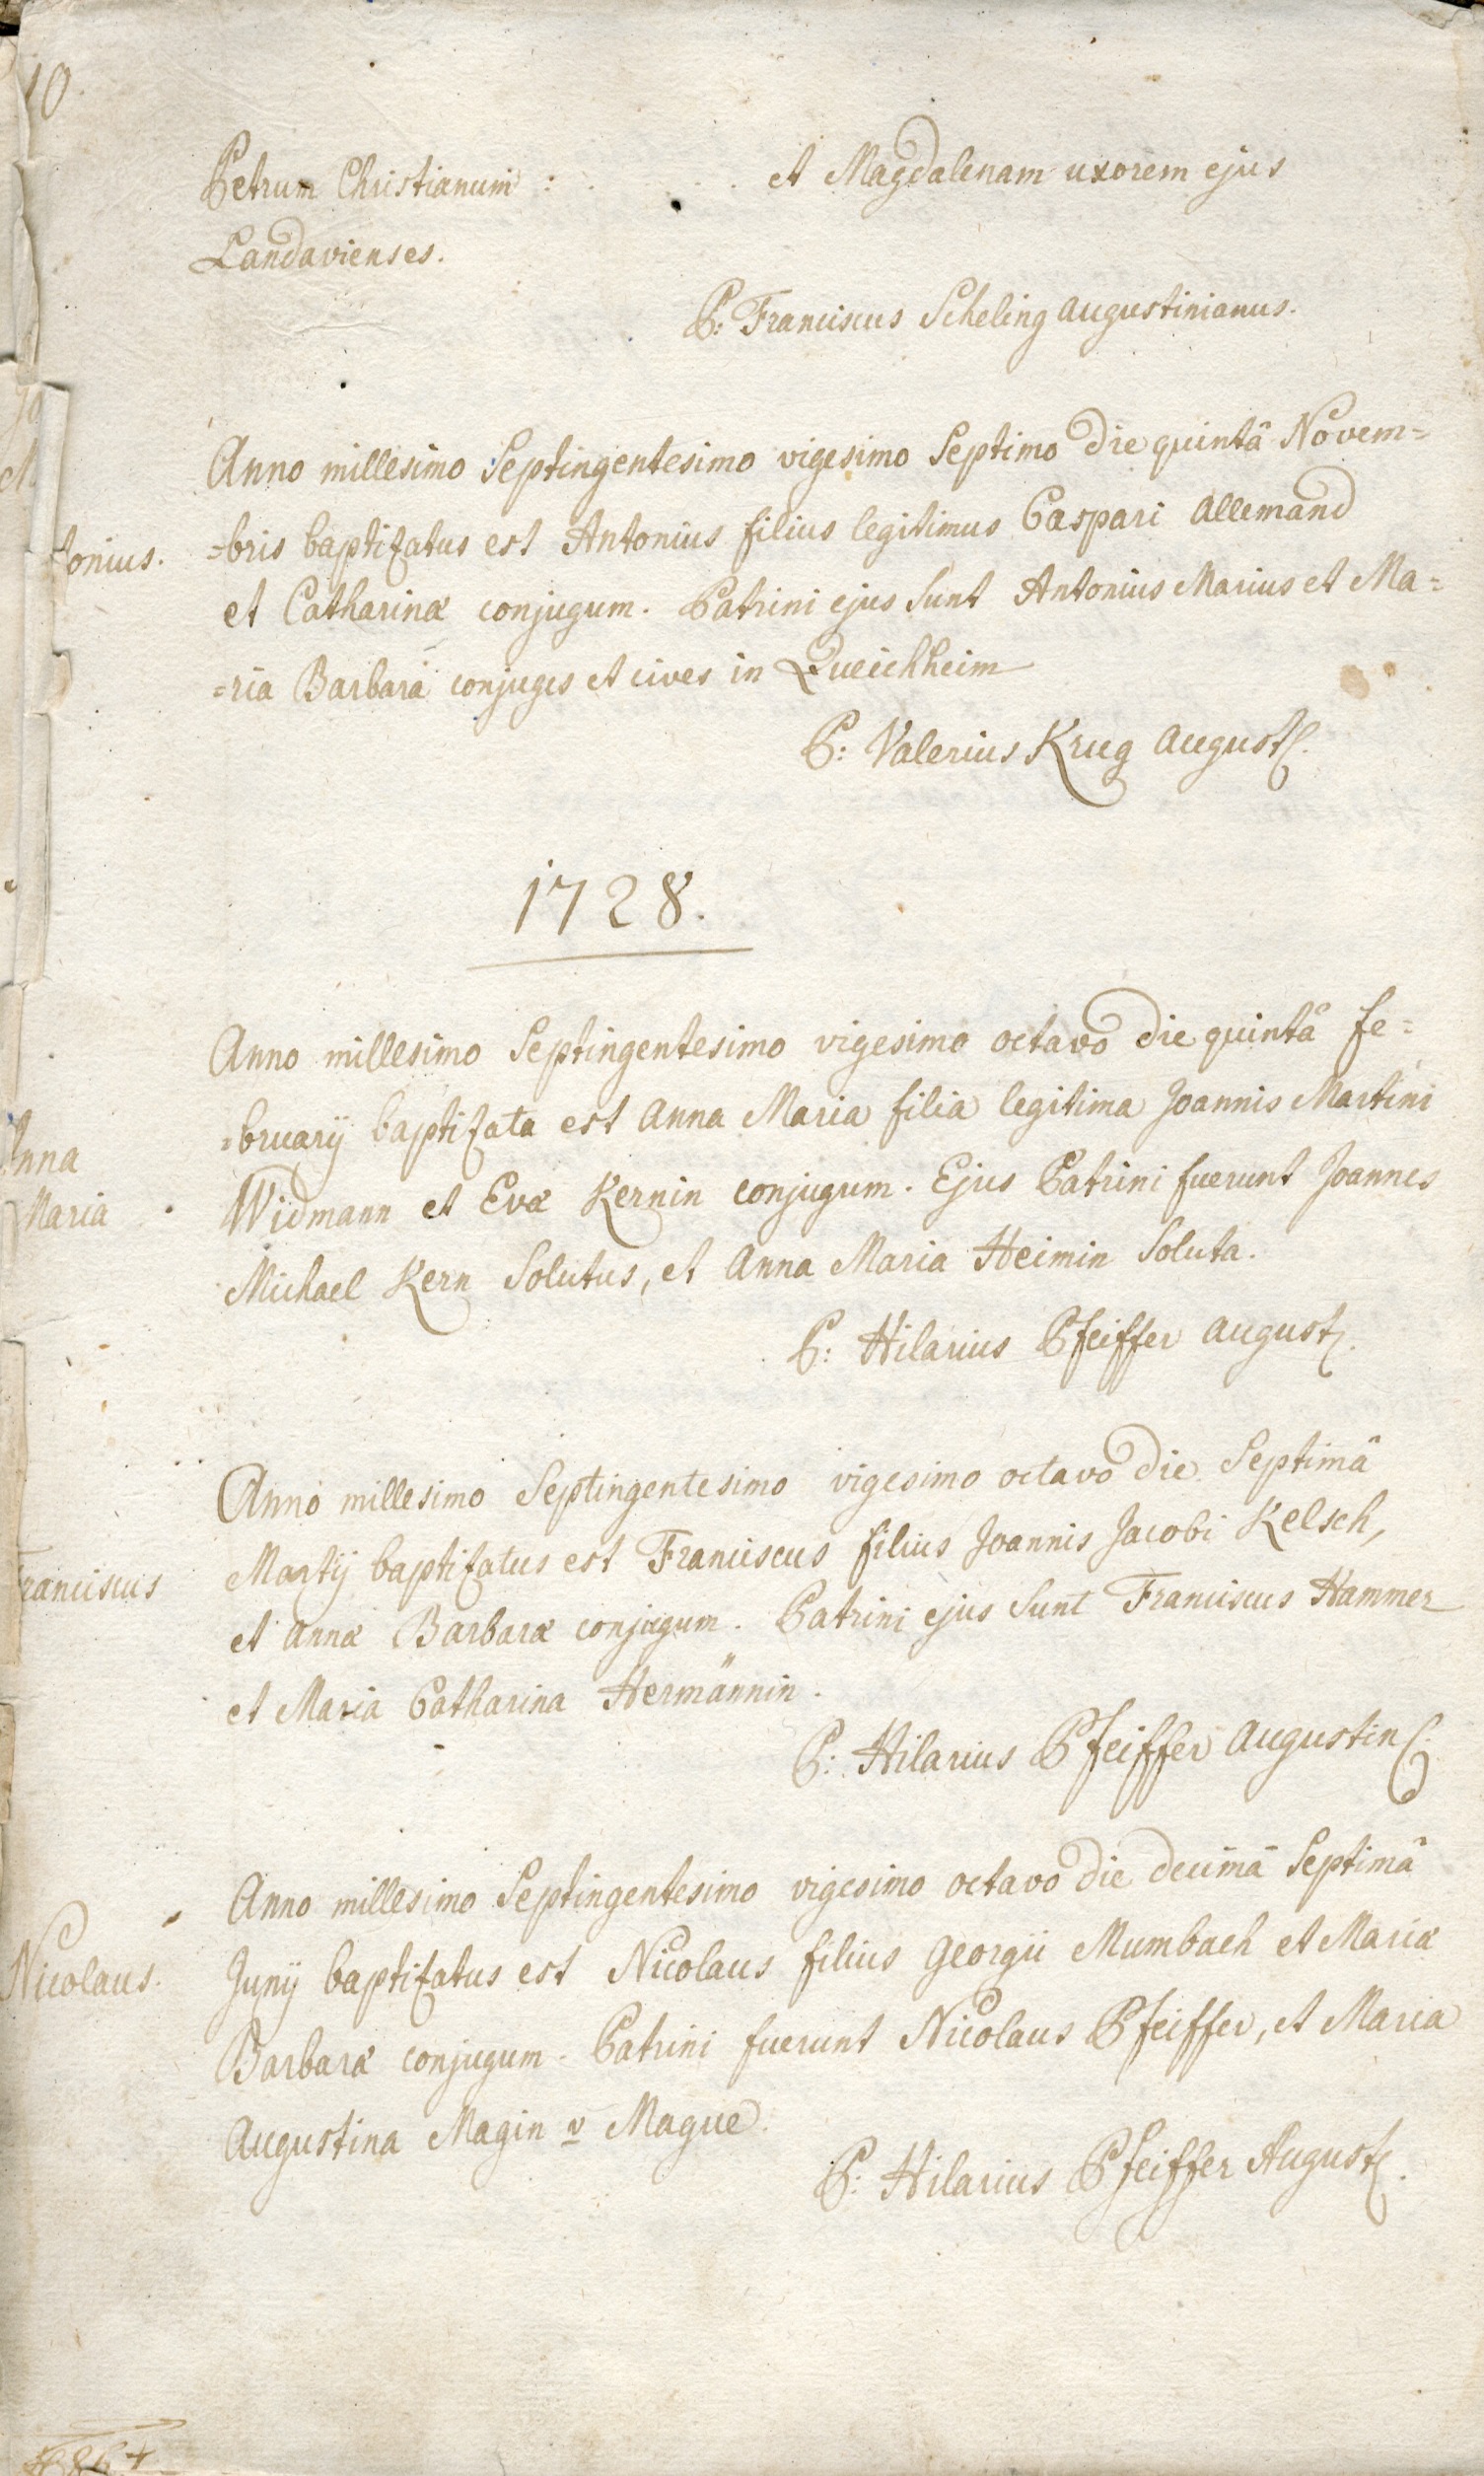 10
Petrum Christianum : . . . . et Magdalenam uxorem ejus
Landavienses.
P: Franciscus Scheling Augustinianus.
Anno millesimo Septingentesimo vigesimo Septimo die quintâ Novem=
tonius. =bris baptizatus est Antonius filius legitimus Caspari Allemand
et Catharinæ conjugum. Patrini ejus sunt Antonius Marius et Ma=
=ria Barbara conjuges et cives in Queichheim
P: Valerius Krug August.
1728.
Anno millesimo Septingentesimo vigesimo octavo die quintâ fe=
=bruarij baptizata est Anna Maria filia legitima Joannis Martini
Anna
Maria Widmann et Evæ Kernin conjugum. Ejus Patrini fuerunt Joannes
Michael Kern Solutus, et Anna Maria Heimin Soluta.
P: Hilarius Pfeiffer August.
Anno millesimo Septingentesimo vigesimo octavo die Septimâ
Franciscus Martij baptizatus est Franciscus filius Joannis Jacobi Kelsch,
et Annæ Barbaræ conjugum. Patrini ejus Sunt Franciscus Hammer
et Maria Catharina Hermännin.
P: Hilarius Pfeiffer Augustin.
Anno millesimo Septingentesimo vigesimo octavo die decimâ Septimâ
Nicolaus. Junij baptizatus est Nicolaus filius Georgii Mumbach et Mariæ
Barbaræ conjugum. Patrini fuerunt Nicolaus Pfeiffer, et Maria
Augustina Magin v Mague.
P: Hilarius Pfeiffer August.